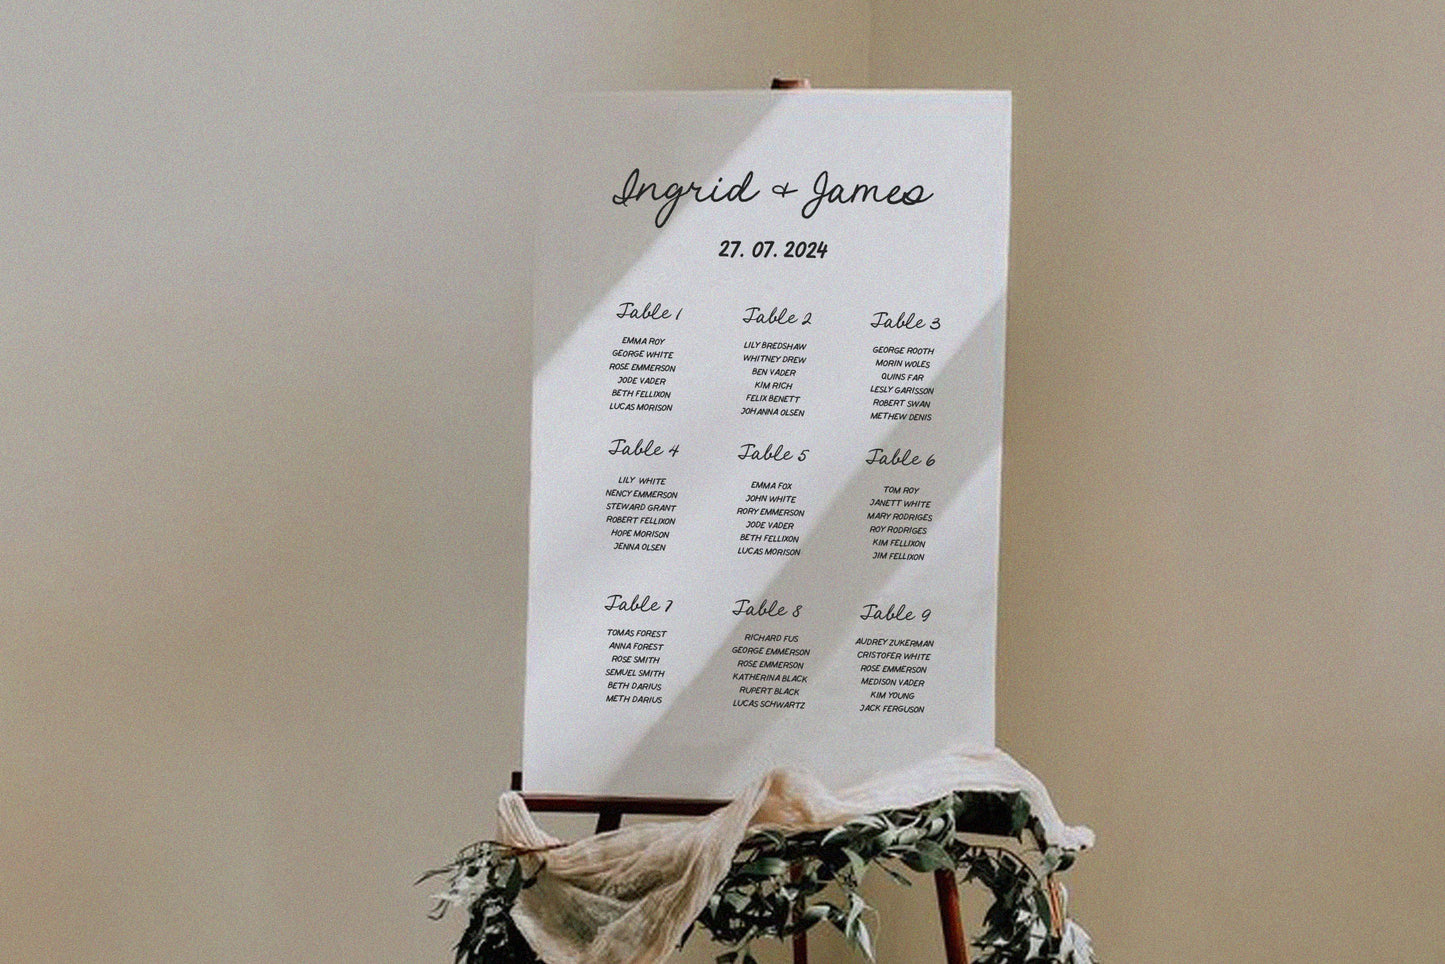 Ingrid & James
27. 07. 2024
Table 1
EMMA ROY
GEORGE WHITE
ROSE EMMERSON
JODE VADER
BETH FELLIXON
LUCAS MORISON
Table 2
LILY BREDSHAW
WHITNEY DREW
BEN VADER
KIM RICH
FELIX BENETT
JOHANNA OLSEN
Table 3
GEORGE ROOTH
MORIN WOLES
QUINS FAR
LESLY GARISSON
ROBERT SWAN
METHEW DENIS
Table 4
LILY WHITE
NENCY EMMERSON
STEWARD GRANT
ROBERT FELLIXON
HOPE MORISON
JENNA OLSEN
Table 5
EMMA FOX
JOHN WHITE
RORY EMMERSON
JODE VADER
BETH FELLIXON
LUCAS MORISON
Table 6
TOM ROY
JANETT WHITE
MARY RODRIGES
ROY RODRIGES
KIM FELLIXON
JIM FELLIXON
Table 7
TOMAS FOREST
ANNA FOREST
ROSE SMITH
SEMUEL SMITH
BETH DARIUS
METH DARIUS
Table 8
RICHARD FUS
GEORGE EMMERSON
ROSE EMMERSON
KATHERINA BLACK
RUPERT BLACK
LUCAS SCHWARTZ
Table 9
AUDREY ZUKERMAN
CRISTOFER WHITE
ROSE EMMERSON
MEDISON VADER
KIM YOUNG
JACK FERGUSON